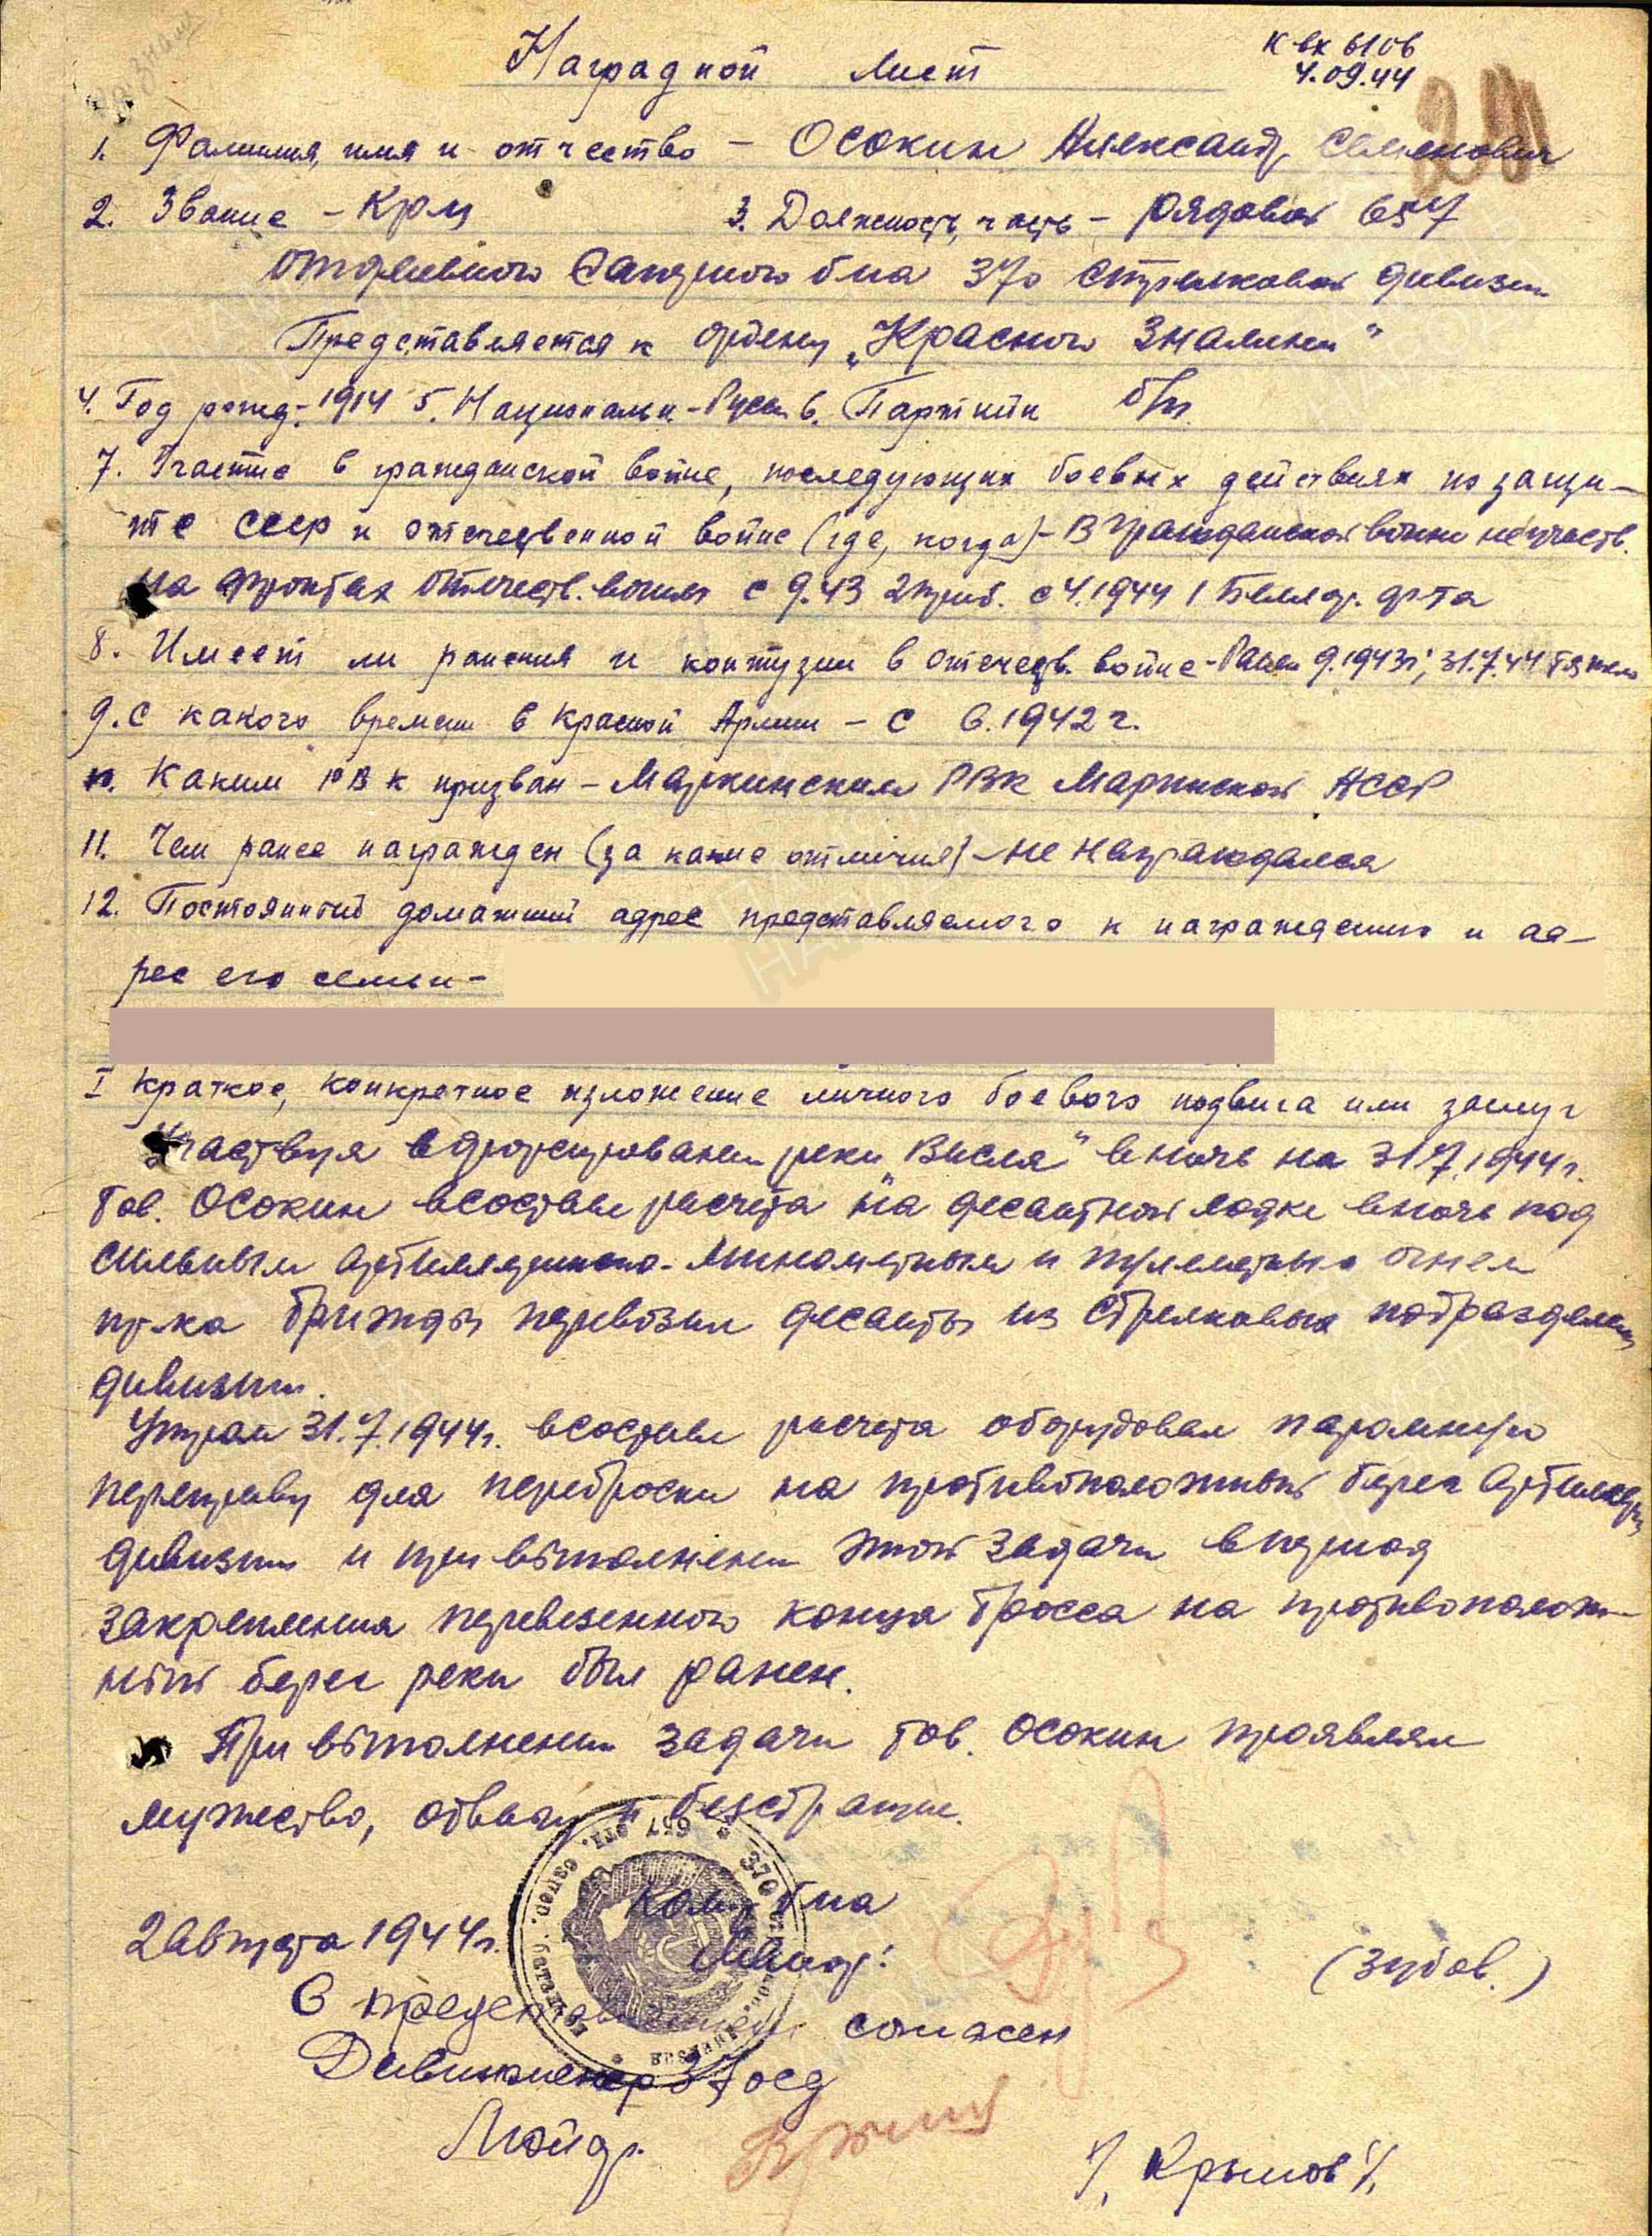 Наградной лист
К вх 6106
4.09.44
1. Фамилия, имя и отчество – Осокин Александр Семенович
2. Звание – Кр-ц 3. Должность, часть – рядовой 657
отдельного Саперного б-на 370 стрелковой дивизии
Представляется к ордену „Красного Знамени"
4. Год рожд.-1914 5. Национальн.-Русск 6. Партийн б/п.
7. Участие в гражданской войне, последующих боевых действиях по защи-
те СССР и отечественной войне (где, когда) – В Гражданской войне не участв.
На фронтах Отечеств. войны с 9.43 2 приб. с 4.1944 1 Белор. ф-та
8. Имеет ли ранения и контузии в отечеств. войне – Ранен 9.1943г; 31.7.44 тяжело
9. С какого времени в Красной Армии – с 6.1942 г.
10. Каким РВК призван – РВК Марийской АССР
11. Чем ранее награжден (за какие отличия) – не награждался
12. Постоянный домашний адрес представляемого к награждению и ад-
рес его семьи –
I Краткое, конкретное изложение личного боевого подвига или заслуг
Участвуя в форсировании реки „Висла" в ночь на 31.7.1944г.
Тов. Осокин в составе расчета на десантной лодке в ночь под
сильным артиллерийско-минометным и пулеметным огнем
пр-ка трижды перевозил десанты из стрелковых подразделен
дивизии.
Утром 31.7.1944г. в составе расчета оборудовал паромную
переправу для переброски на противоположный берег артиллерии
дивизии и при выполнении этой задачи в период
закрепления перевезенного конца тросса на противополож-
ный берег реки был ранен.
При выполнении задачи тов. Осокин проявлял
мужество, отвагу и безстрашие.
Ком. б-на
2 августа 1944г. Майор: (Зубов.)
С представлением согласен
Дивинженер 370 сд
Майор. /Крылов/